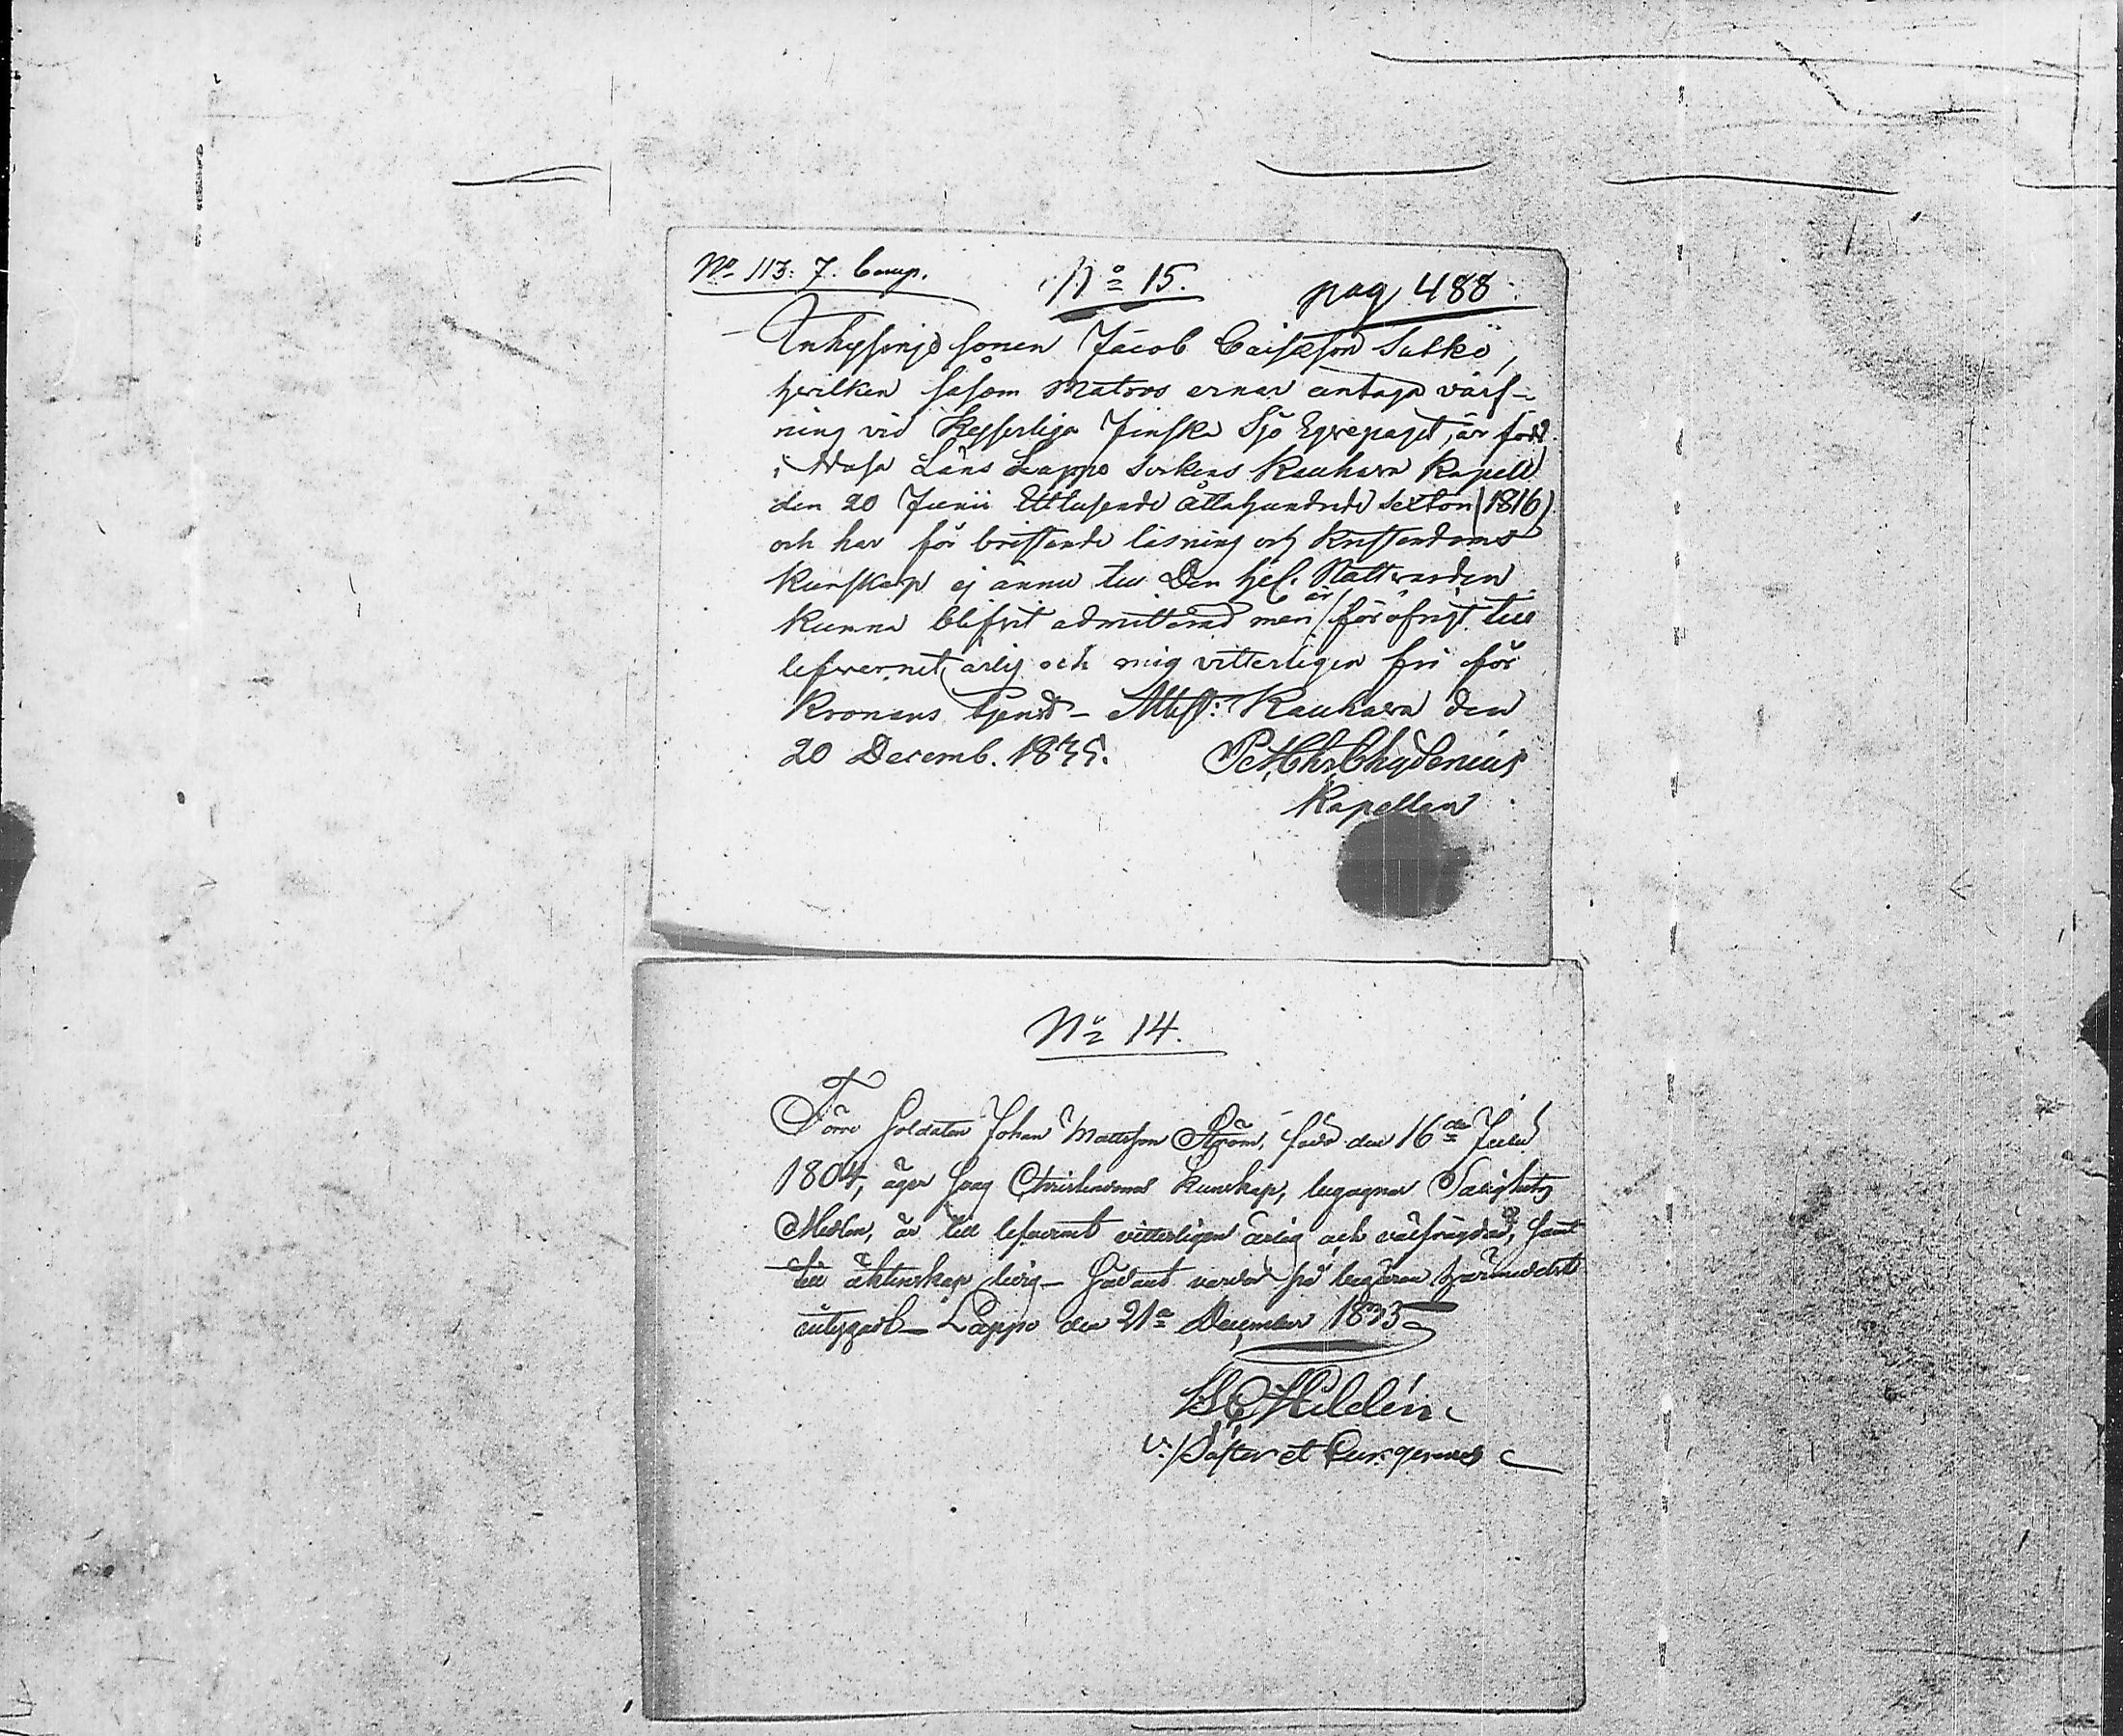 No 113: 7. Comp.
No 15.
pag 488.
Inhysings sonen Jacob Caisason Salko,
hvilken såsom Matros ernar antaga värf-
ning vid Kejserliga Finska Sjö Eqvipaget, är född
i Wasa Läns Lappo Sockens Kauhava Kapell
den 20 Junii Ettusende Åttahundrade Sexton (1816)
och har för bristande läsning och Kristendoms
Kunskap ej ännu till Den hel. Nattvarden
kunna blifvit admitterad men är för öfrigt till
lefvernet ärlig och mig vitterligen fri för
Kronans tjenst – Attest: Kauhava den
20 Decemb. 1835.
Pet. Chr. Chydenius
Kapellan
No 14.
Förre Soldaten Johan Mattsson Ström, född den 16de Julii
1804, äger svag Christendoms kunskap, begagnar Salighets
Medlen, är till lefvernet vitterligen ärlig och välfrägdad, samt
till äktenskap ledig – Sådant varder på begäran härmedelst
intygadt – Lappo den 21a December 1833
Hildén
v. Pastor et